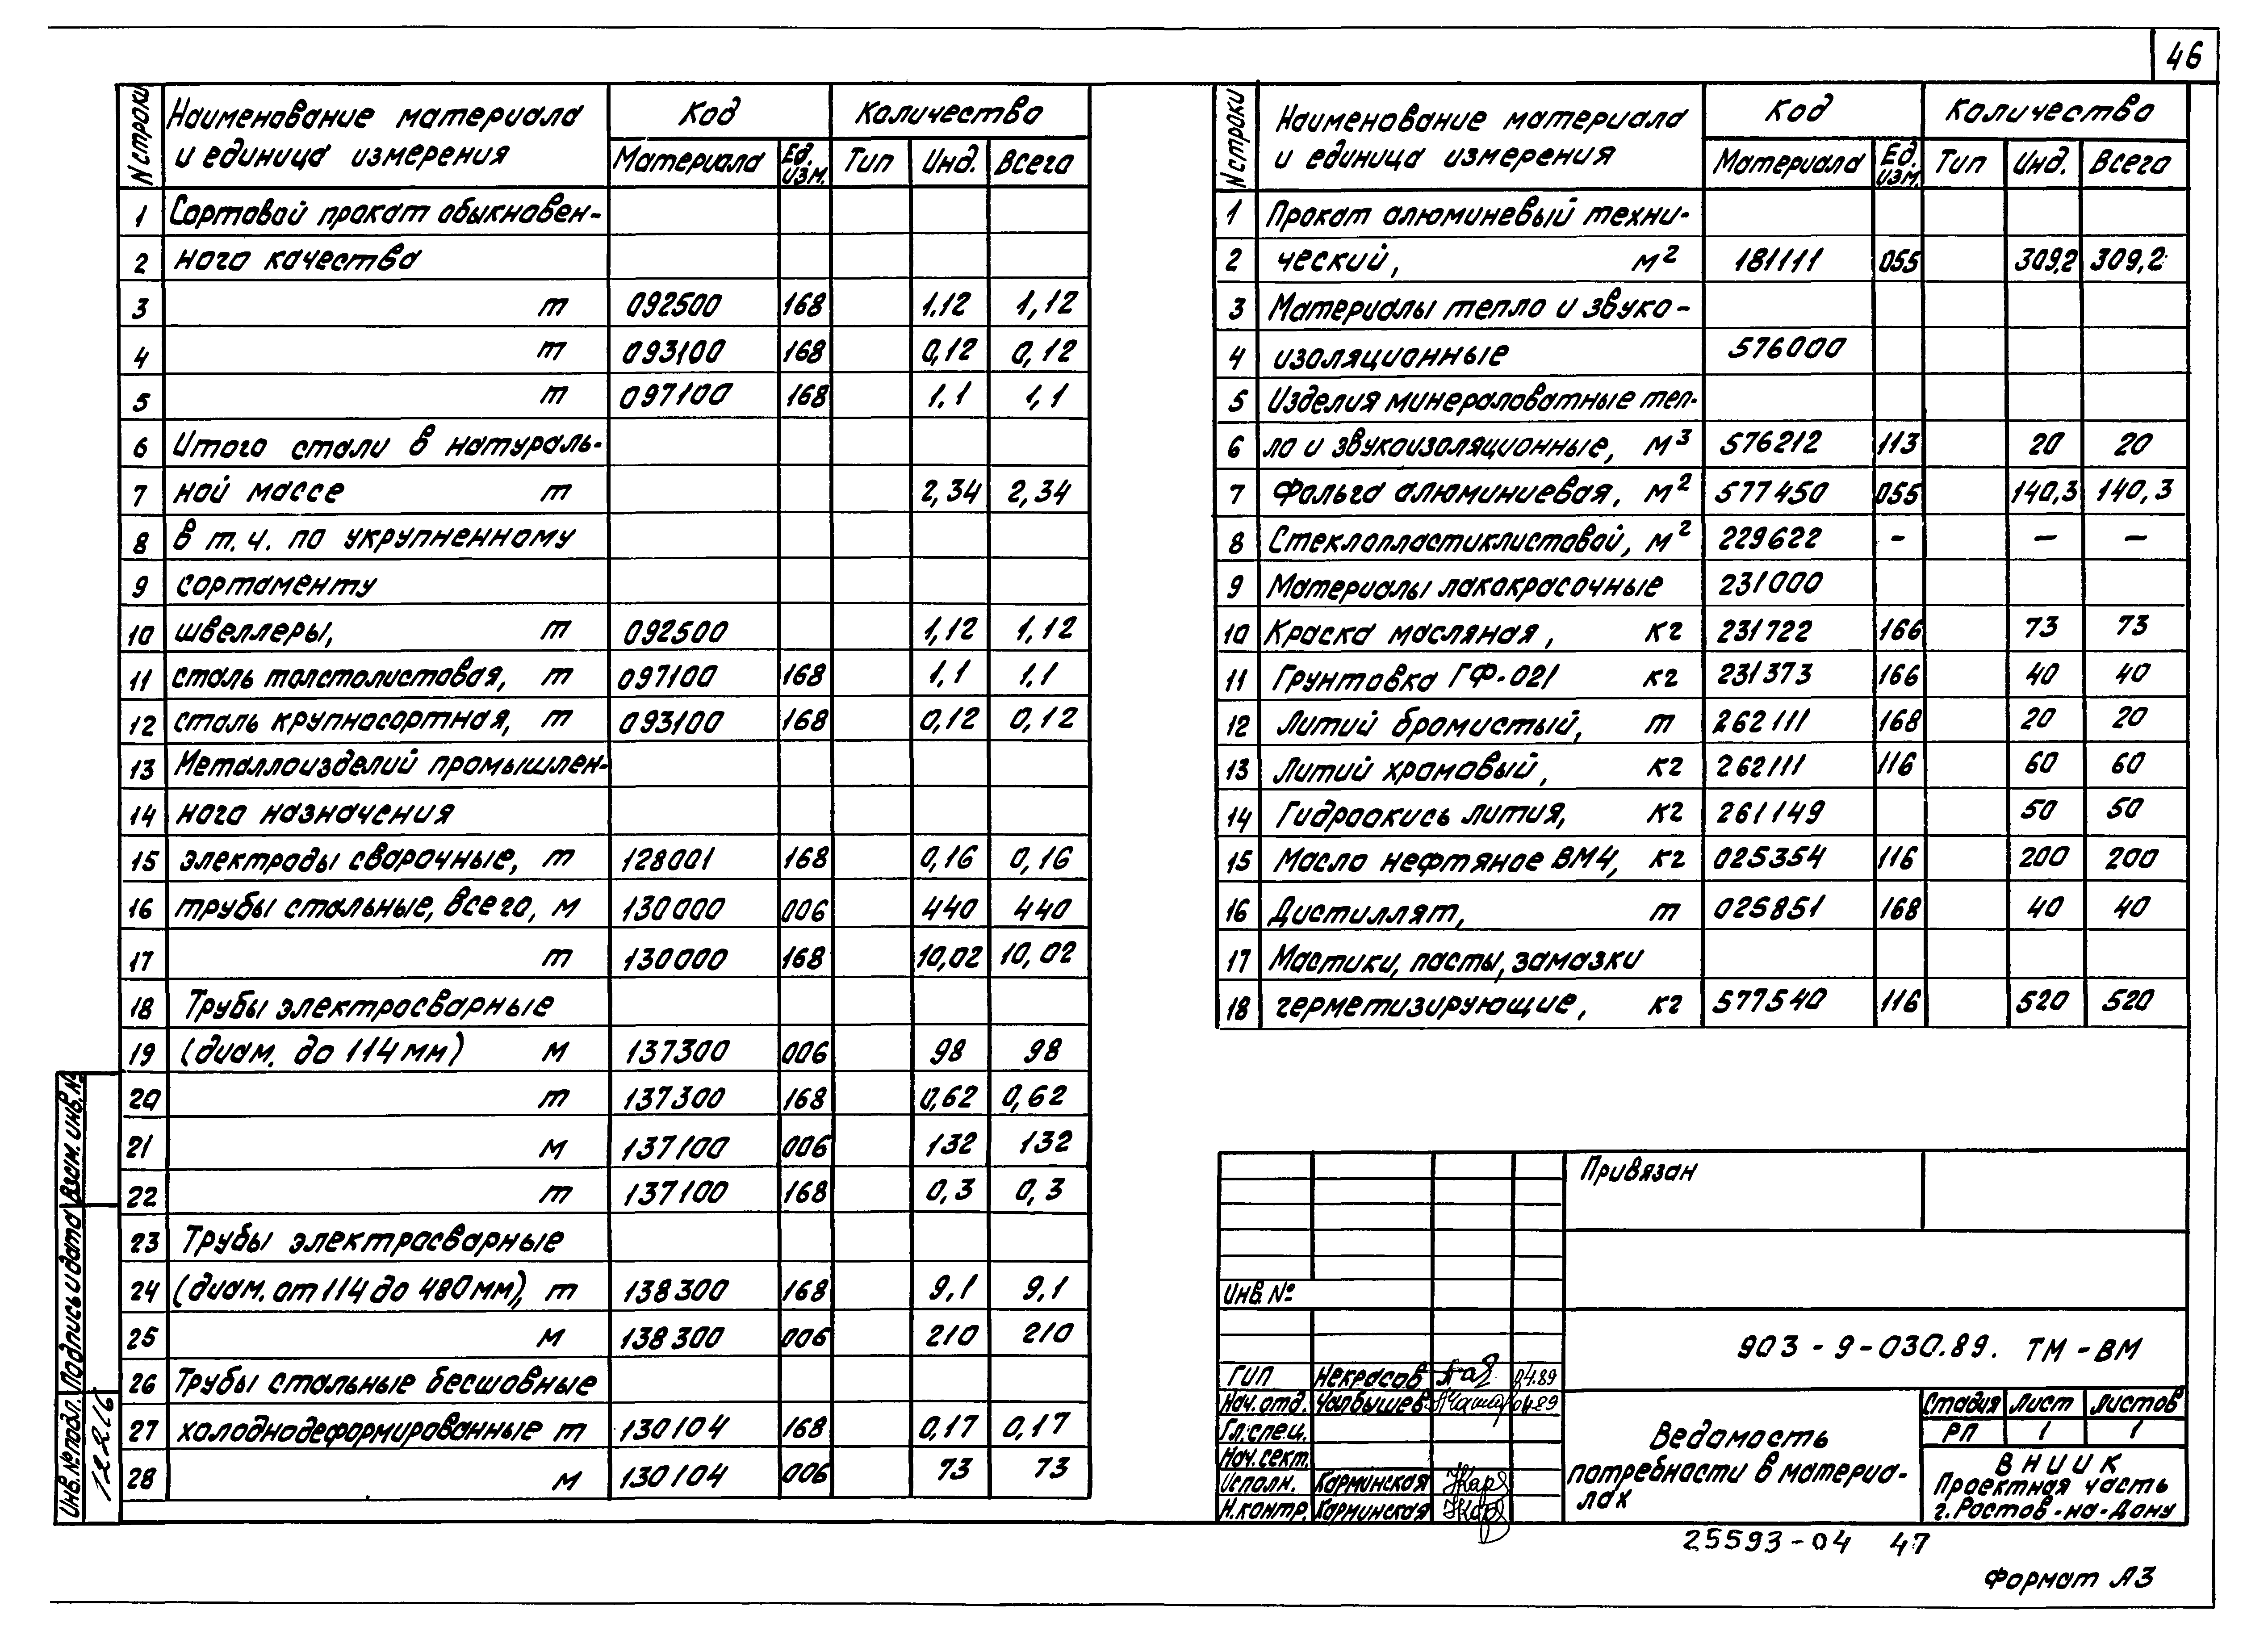 46
N строки Наименование материала и единица измерения Код Количество
Материала Ед. изм. Тип Инд. Всего
1 Сортовой прокат обыкновен-
2 ного качества
3 т 092500 168 1.12 1,12
4 т 093100 168 0,12 0,12
5 т 097100 168 1.1 1,1
6 Итого стали в натураль-
7 ной массе т 2,34 2,34
8 в т.ч. по укрупненному
9 сортаменту
10 швеллеры, т 092500 1,12 1,12
11 сталь толстолистовая, т 097100 168 1.1 1.1
12 сталь крупносортная, т 093100 168 0,12 0,12
13 Металлоизделий промышлен-
14 ного назначения
15 электроды сварочные, т 128001 168 0,16 0,16
16 трубы стальные, всего, м 130000 006 440 440
17 т 130000 168 10,02 10,02
18 Трубы электросварные
19 (диам. до 114 мм) м 137300 006 98 98
20 т 137300 168 0,62 0,62
21 м 137100 006 132 132
22 т 137100 168 0,3 0,3
23 Трубы электросварные
24 (диам. от 114 до 480 мм), т 138300 168 9,1 9,1
25 м 138300 006 210 210
26 Трубы стальные бесшовные
27 холоднодеформированные т 130104 168 0,17 0,17
28 м 130104 006 73 73
N строки Наименование материала и единица измерения Код Количество
Материала Ед. изм. Тип Инд. Всего
1 Прокат алюминевый техни-
2 ческий, м² 181111 055 309,2 309,2
3 Материалы тепло и звуко-
4 изоляционные 576000
5 Изделия минераловатные теп-
6 ло и звукоизоляционные, м³ 576212 113 20 20
7 Фольга алюминиевая, м² 577450 055 140,3 140,3
8 Стеклопластиклистовой, м² 229622 - — —
9 Материалы лакокрасочные 231000
10 Краска масляная, кг 231722 166 73 73
11 Грунтовка ГФ-021 кг 231373 166 40 40
12 Литий бромистый, т 262111 168 20 20
13 Литий хромовый, кг 262111 116 60 60
14 Гидроокись лития, кг 261149 50 50
15 Масло нефтяное ВМ4, кг 025354 116 200 200
16 Дистиллят, т 025851 168 40 40
17 Мастики, пасты, замазки
18 герметизирующие, кг 577540 116 520 520
Привязан
Инв. №
903-9-030.89. ТМ-ВМ
ГИП Некрасов 04.89
Нач. отд. Чалбышев 04.89
Гл. спец.
Нач. сект.
Исполн. Карминская
Н. контр. Карминская
Ведомость
потребности в материа-
лах
Стадия Лист Листов
РП 1 1
ВНИИК
Проектная часть
г. Ростов-на-Дону
Взам. инв. №
Подпись и дата
Инв. № подл.
12216
25593-04 47
Формат А3